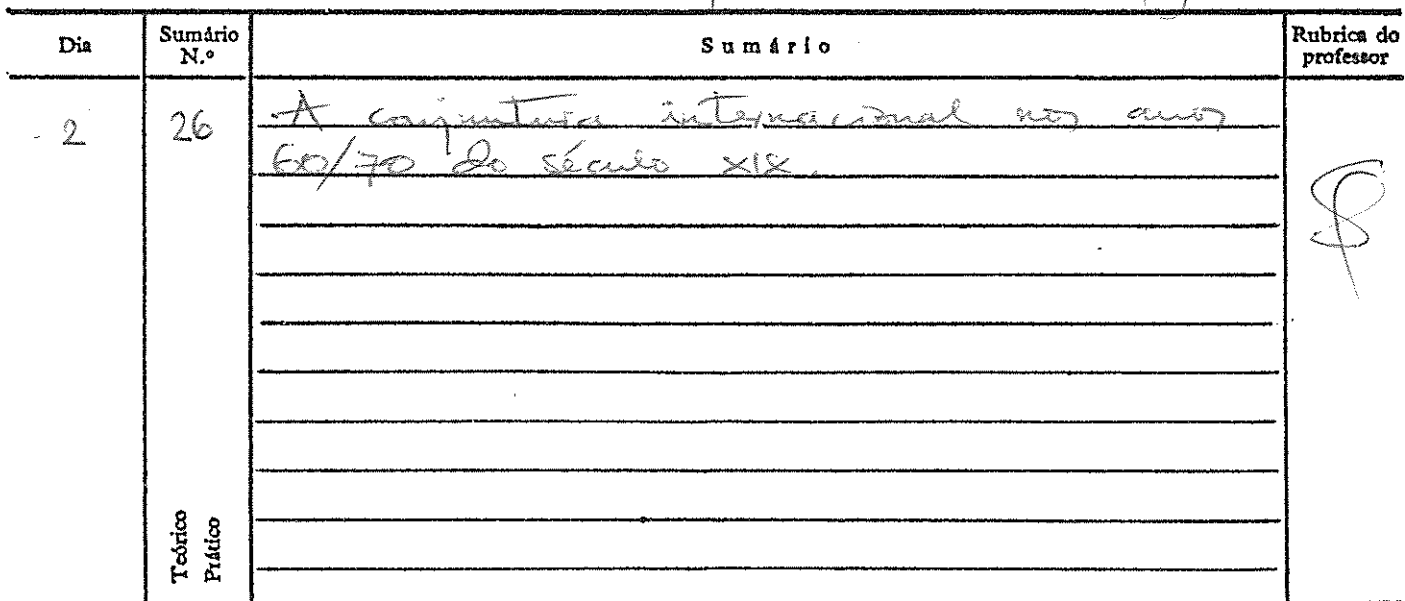 Dia
Sumário N.º
Sumário
Rubrica do professor
2
26
A conjuntura internacional nos anos
60/70 do século XIX.
Teórico
Prático